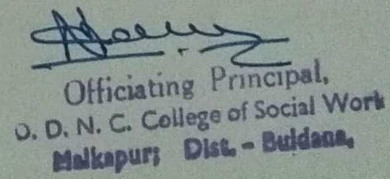 Officiating Principal,
O. D. N. C. College of Social Work
Malkapur; Dist. - Buldana,